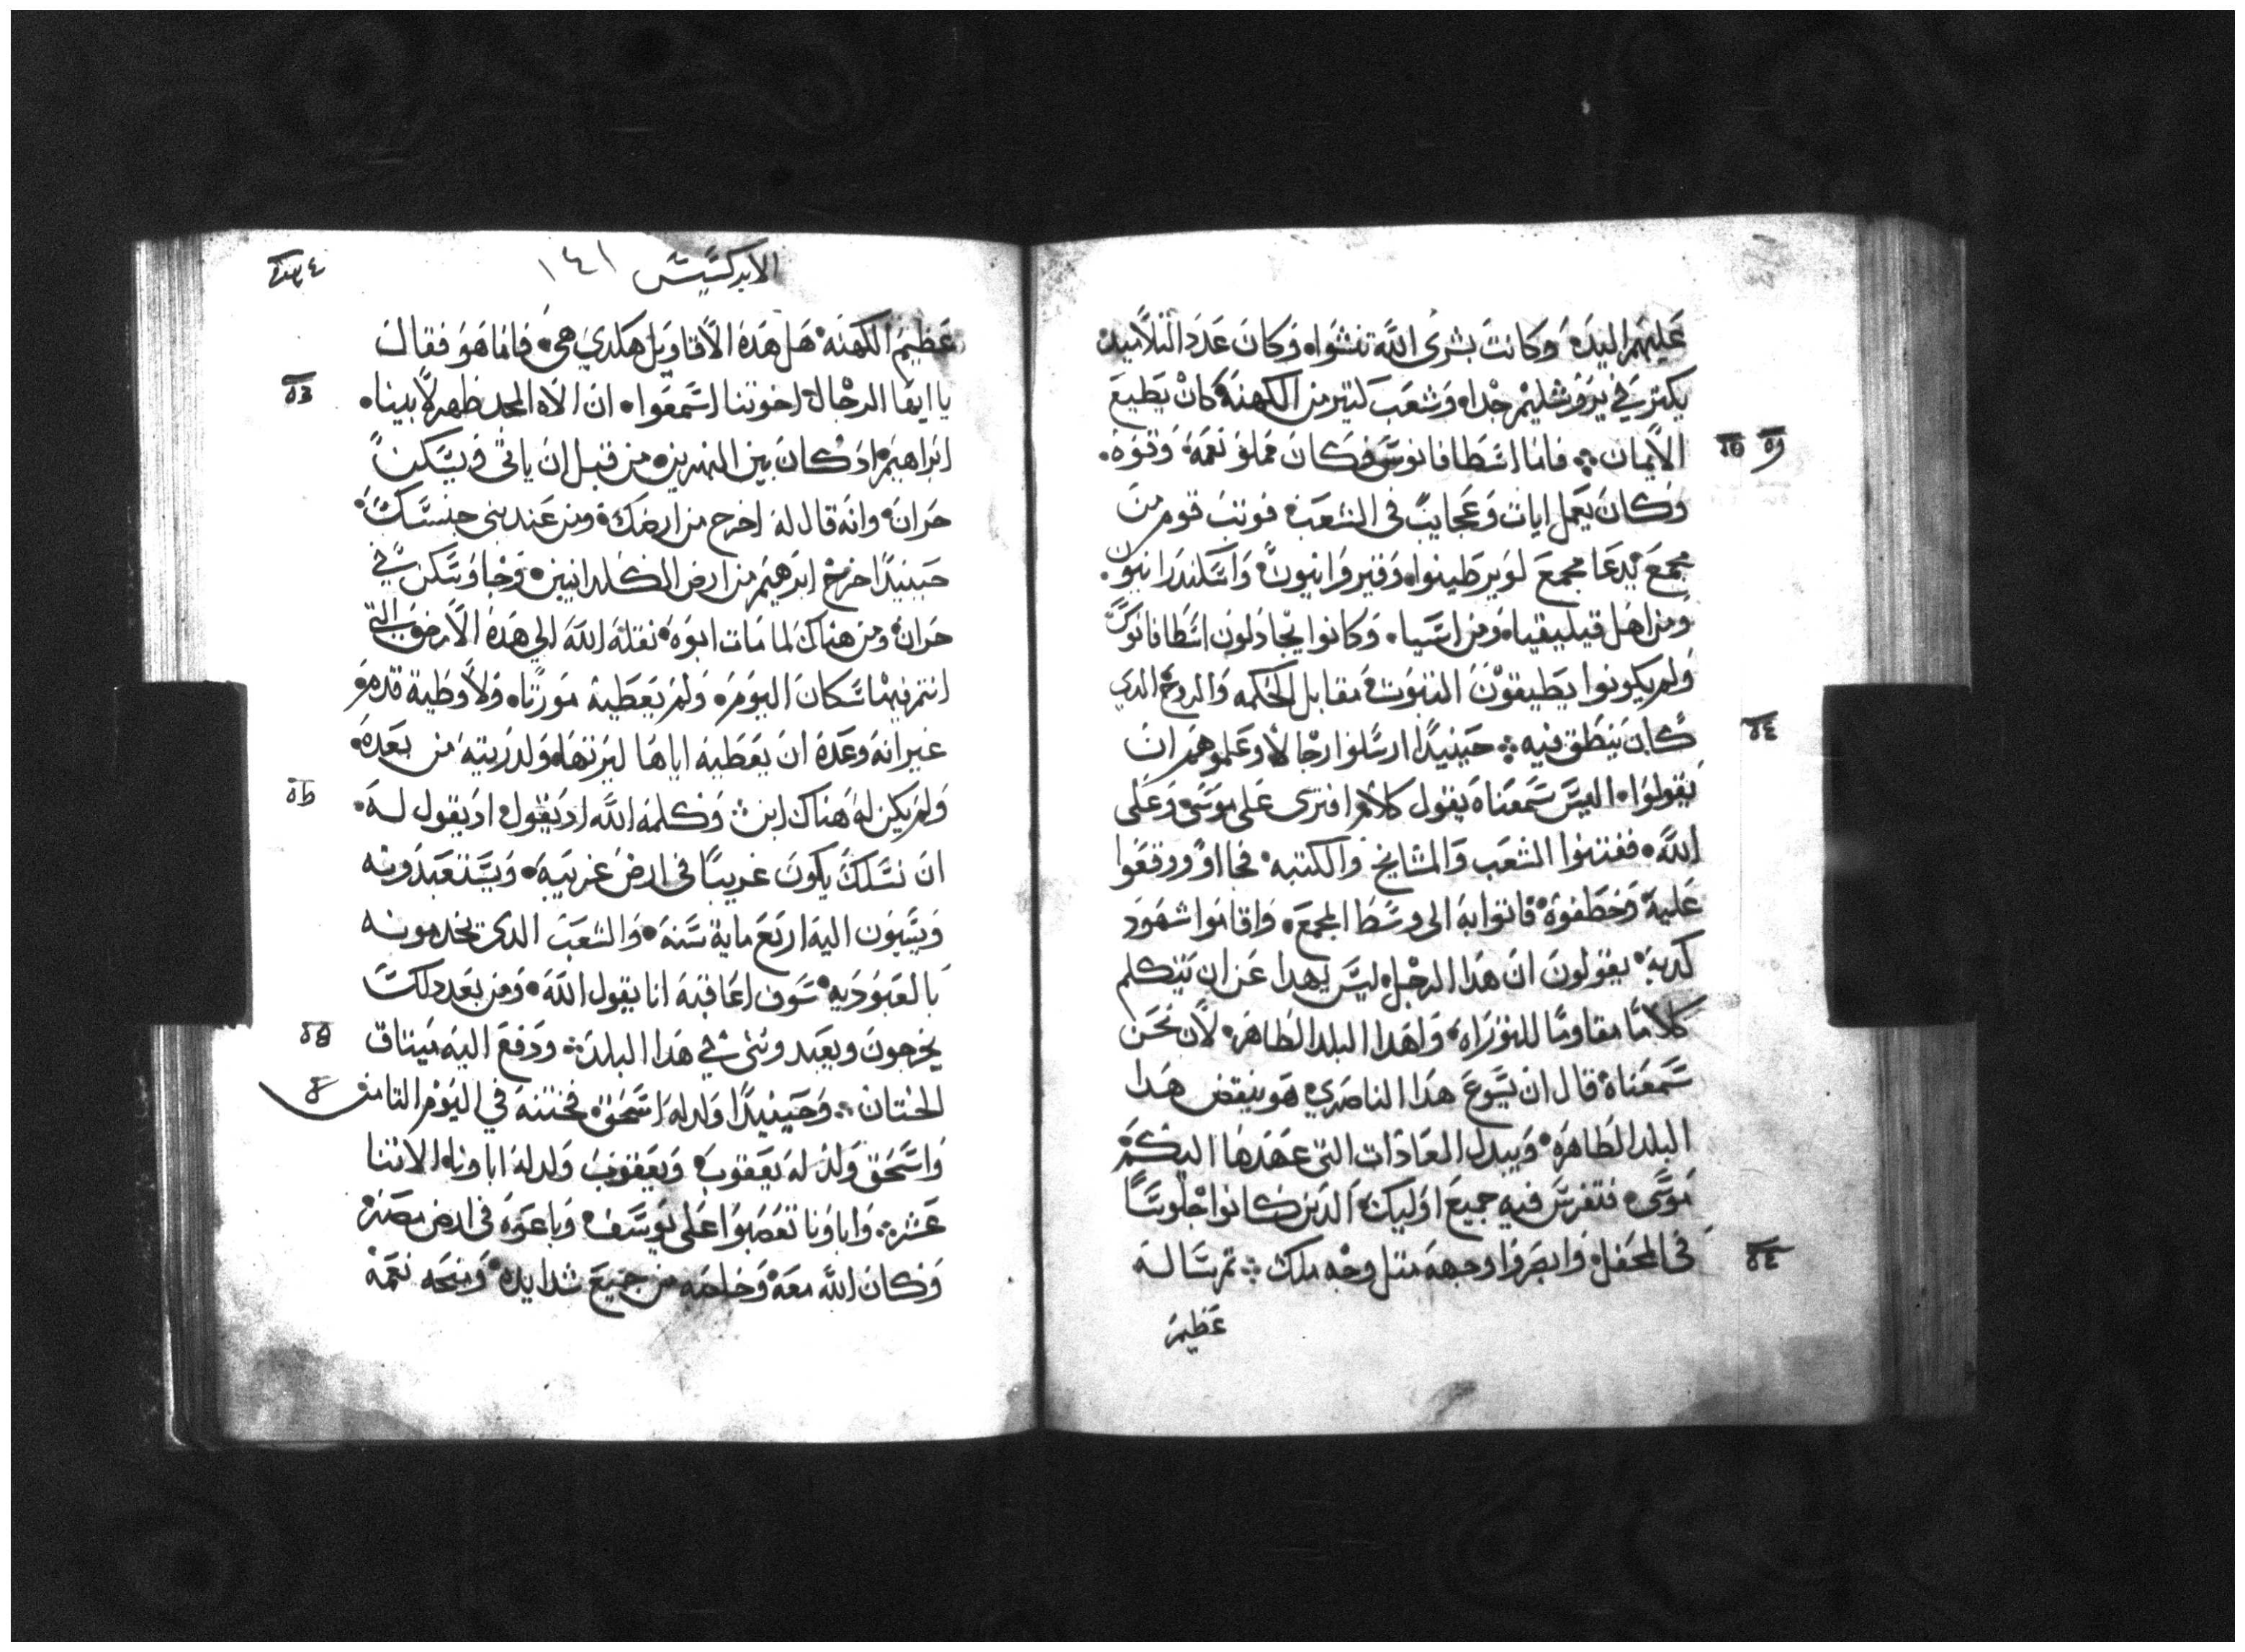 عَليهم اليدَهْ وَكانت بشرى اللَّه تنشواه وَكان عَدَد التلاميد
يكتر في يرَوُشليمْ جْداه وَشعَب كتير من الكهنهْ كانْ يَطيع
الاَيمان ܀ فاما اسَطافانوسَ فكان مَملوَ نعَمَهْ وَقوَهْ.
وَكانَ يَعَمل ايات وَعَجايبْ فى الشعَب فوتبَ قوم منَ
مجَمعَ يَدعَا مجمعَ لوَيرطَينوا وَقيروَانيونَ وَاسَكندرَانيون.
وَمن اهَل قيليقياه وَمن اسَيا. وَكانوا يجْادلون اسَطافانوسَ
وَلم يكونوا يطَيقوْن التبوَتْ مقابل الحَكمه وَالروحْ الدي
كانَ ينطَق فيه ܀ حَينيدًا ارسَلوا رجْالاً وعَلموهَم ان
يَقولوَا. اننا سَمعَناه يَقول كلام افترى عَلى موَسَى وَعَلى
اللَّه. ففتنوا الشعَب وَالمشايخ وَالكتبه فجااوً ووقفوَا
عَليهْ وَخطَفوهْ فاتوا بهَ الى وسَطَ المجمعَ. وَاقاموَا شهَود
كدبهْ يقولونَ ان هَدا الرجْل ليسَ يهدا عَن ان يتكلم
كلامًا مقاومًا للتوَرَاه وَلهَدا البلد الطَاهرَهْ لاَن نحَن
سَمعَناهْ قال ان يسَوعَ هَدا الناصَري هَوَ ينقض هَدا
البلد الطَاهرَهْ وَيبدل العَادَات التى عَهَدهَا اليكمَ
موَسَى. فتفرسَ فيه جميعَ اوَليك الدَين كانوا جْلوسًَا
فى المحَفل وَابصَروَا وجهَهَ متل وجْه ملك ܀ تم سَاله
عَظيمَ
الابركسَيسَ ١٤١
عَظيمَ الكهنهْ هَل هَدهْ الاَقاوَيل هَكدي هىَ. فاما هَوَ فقال
يا ايهَا الرجْال اخوتنا اسَمعَوا. ان الاَه المجد ظهر لاَبينا.
ابرَاهيم ادْ كان بين النهَرين من قبل ان ياتى وَيسَكنْ
حَران. وانهَ قال لهَ اخرج من ارضَك ومن عَند بنى جنسَك.
حَينيدًا خرجْ ابرَهيمَ من ارض الكلدانيين وَجْا وَسَكن في
حَران وَمن هناكَ لما مَات ابوهَ نقلهَ اللَّه الي هَدهْ الاَرض التى
انتم فيهَا سَكانَ اليوَمَ. وَلم يَعَطَيهْ موَرتاه وَلاَ وطَيةَ قدمَ
غير انهَ وعَدهْ انَ يَعَطَيهَ اياهَا ليرتهَا وَلدريتهَ من بعَدهْ
وَلم يكن لهَ هَناك ابن وَكلمهَ اللَّه اد يقول اد يَقول لهَ.
انَ نسَلكَ يكونَ غريبًا فى ارضَ غريبهَ. وَيسَتعَبدَونه
وَيسَيوَن اليهَ اربَعَ مايةَ سَنهَ. وَالشعَبَ الدى يخدمونه
بَالعَبوَديهْ سَوف اعَاقبهَ انا يقول اللَّه. وَمن بعَد دلكَ
يخرجَونَ ويعَبدونى في هَدا البلد. ودَفعَ اليهَ ميتاق
الحتان ܀ وَحَينيدًا وَلد لهَ اسَحَق فختنهَ في اليوَم التامن
وَاسَحَق وَلد لهَ يَعَقوب وَيعَقوب وَلد لهَ اباونا الاتنا
عَشر ܀ وَاباوَنا تعَصَبوَا عَلى يوَسَف وَباعَوهَ فى ارض مصَر.
وَكان اللَّه معَهْ وَخلصَه من جميعَ شدايدهْ وَمنحَه نعَمَهْ